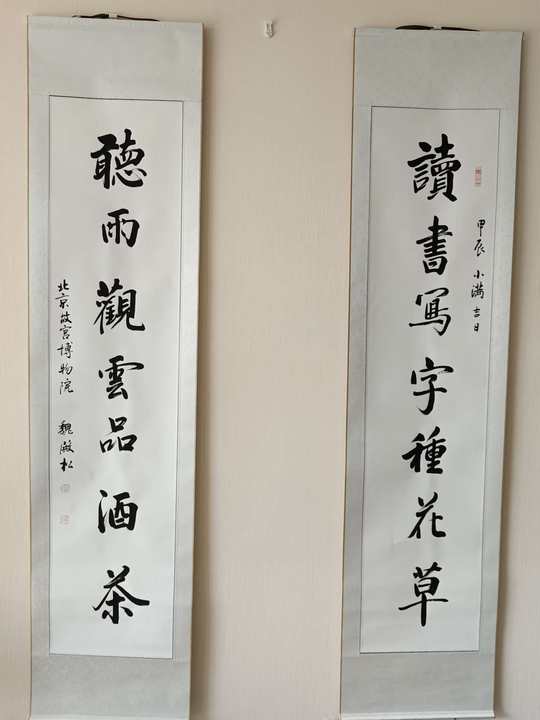 讀書寫字種花草
甲辰 小滿吉日
聽雨觀雲品酒茶
北京故宮博物院 魏啟松